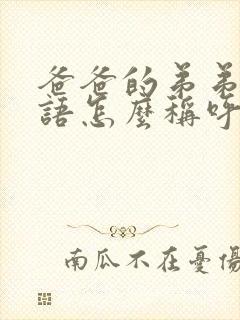 爸爸的弟弟
語怎麼稱呼
南瓜不在憂傷